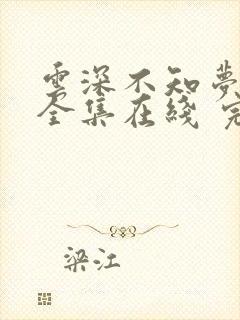 雲深不知夢
全集在綫 完
梁江